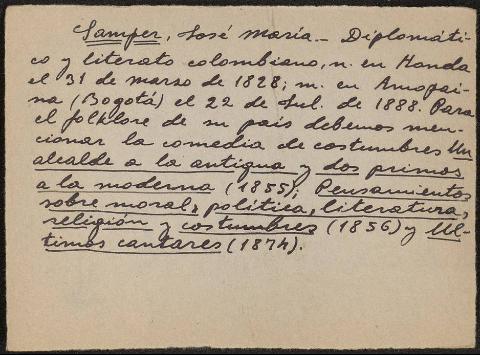 Samper, José María.- Diplomáti-
co y literato colombiano, n. en Honda
el 31 de marzo de 1828; m. en Anapoi-
ma (Bogotá) el 22 de Jul. de 1888. Para
el folklore de su país debemos men-
cionar la comedia de costumbres Un
alcalde a la antigua y dos primos
a la moderna (1855); Pensamientos
sobre moral, política, literatura,
religión y costumbres (1856) y Ul-
timos cantares (1874).